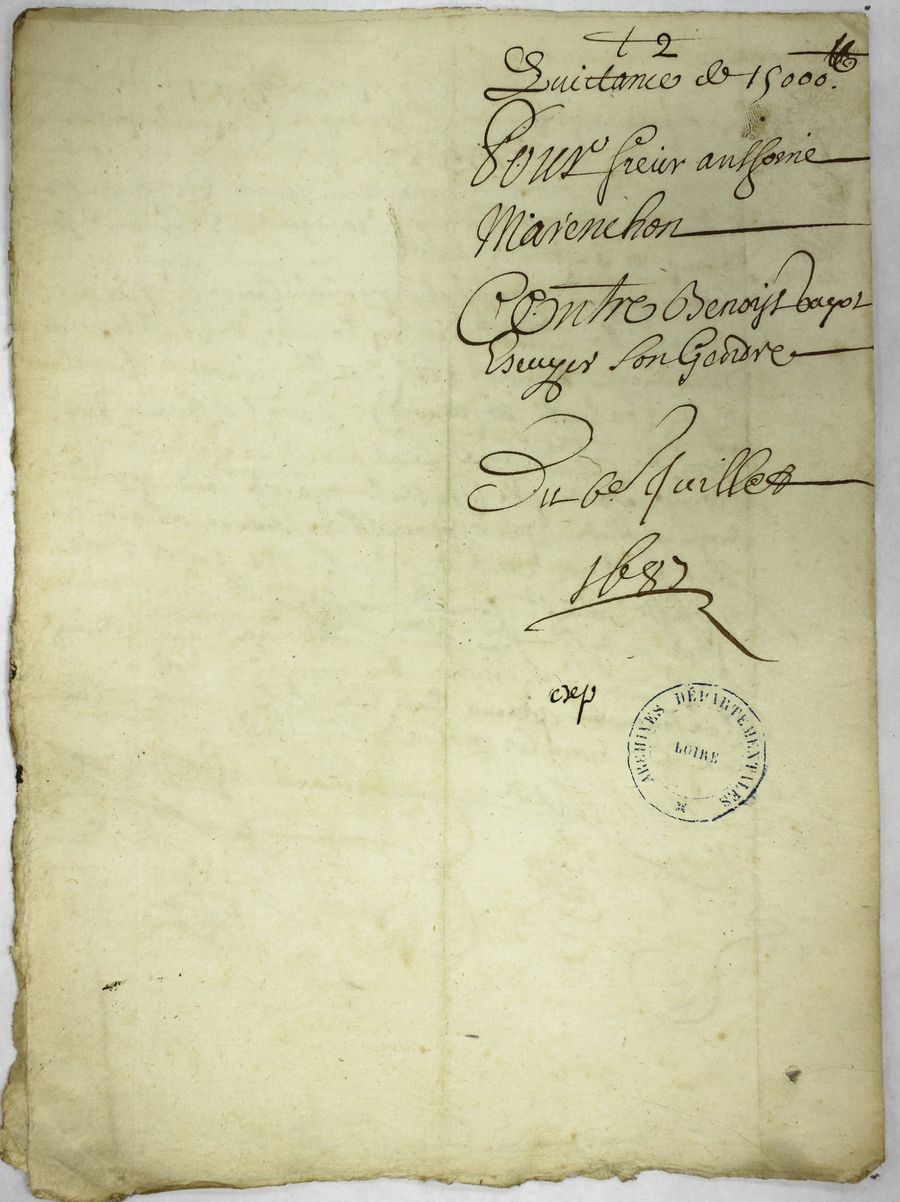 t 2
Quictance de 15000.
Pour sieur anthoine
Marenchon
Contre Benoist
Escuyer son Gendre
Du 6e Juillet
1687
exp
ARCHIVES DÉPARTEMENTALES
LOIRE